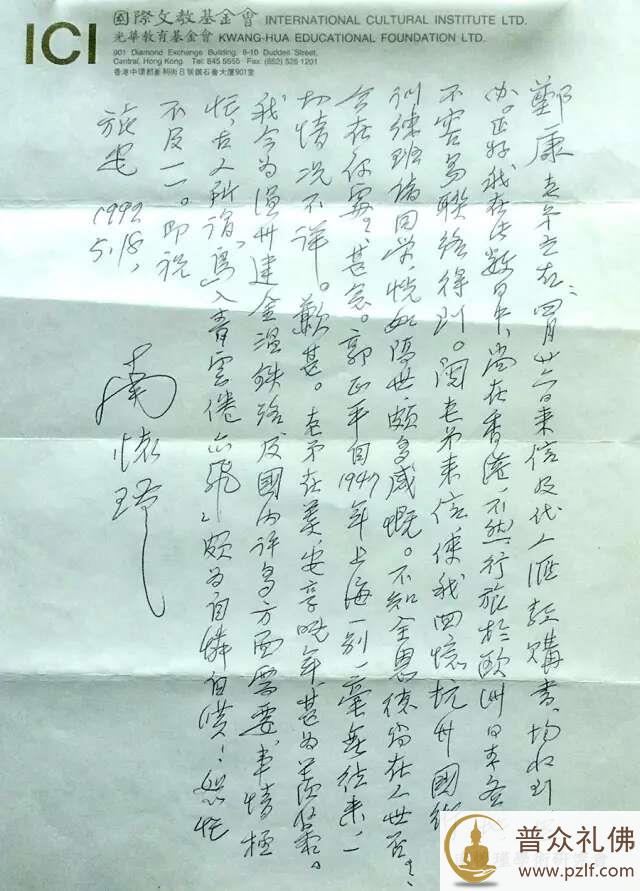 ICI
國際文教基金會 INTERNATIONAL CULTURAL INSTITUTE LTD.
光華教育基金會 KWANG-HUA EDUCATIONAL FOUNDATION LTD.
901 Diamond Exchange Building, 8-10 Duddell Street,
Central, Hong Kong. Tel: 845 5555 Fax: (852) 525 1201
香港中環都爹利街8號鑽石會大廈901室
鄭康老弟左右：四月廿三日來信及代人匯款購書，均收到
正好我在此數日中，尚在香港，不然，行旅於歐洲日本各
不容易聯絡得到。閱老弟來信，使我回憶杭州國術
訓練班諸同學，恍如隔世，頗多感慨。不知全恩德尚在人世否？
今在何處？甚念。郭正平自1947年上海一別，毫無往來，一
切情況不詳。歉甚。老弟在美，安享晚年，甚為羨慕。
我今為溫州建金溫鐵路及國內許多方面需要，事情極
忙，古人所謂「鳥入青雲倦亦飛」頗為自憐自！匆忙
不及一一。即祝
旅安 1992
5.18.
南懷瑾
普众礼佛
www.pzlf.com